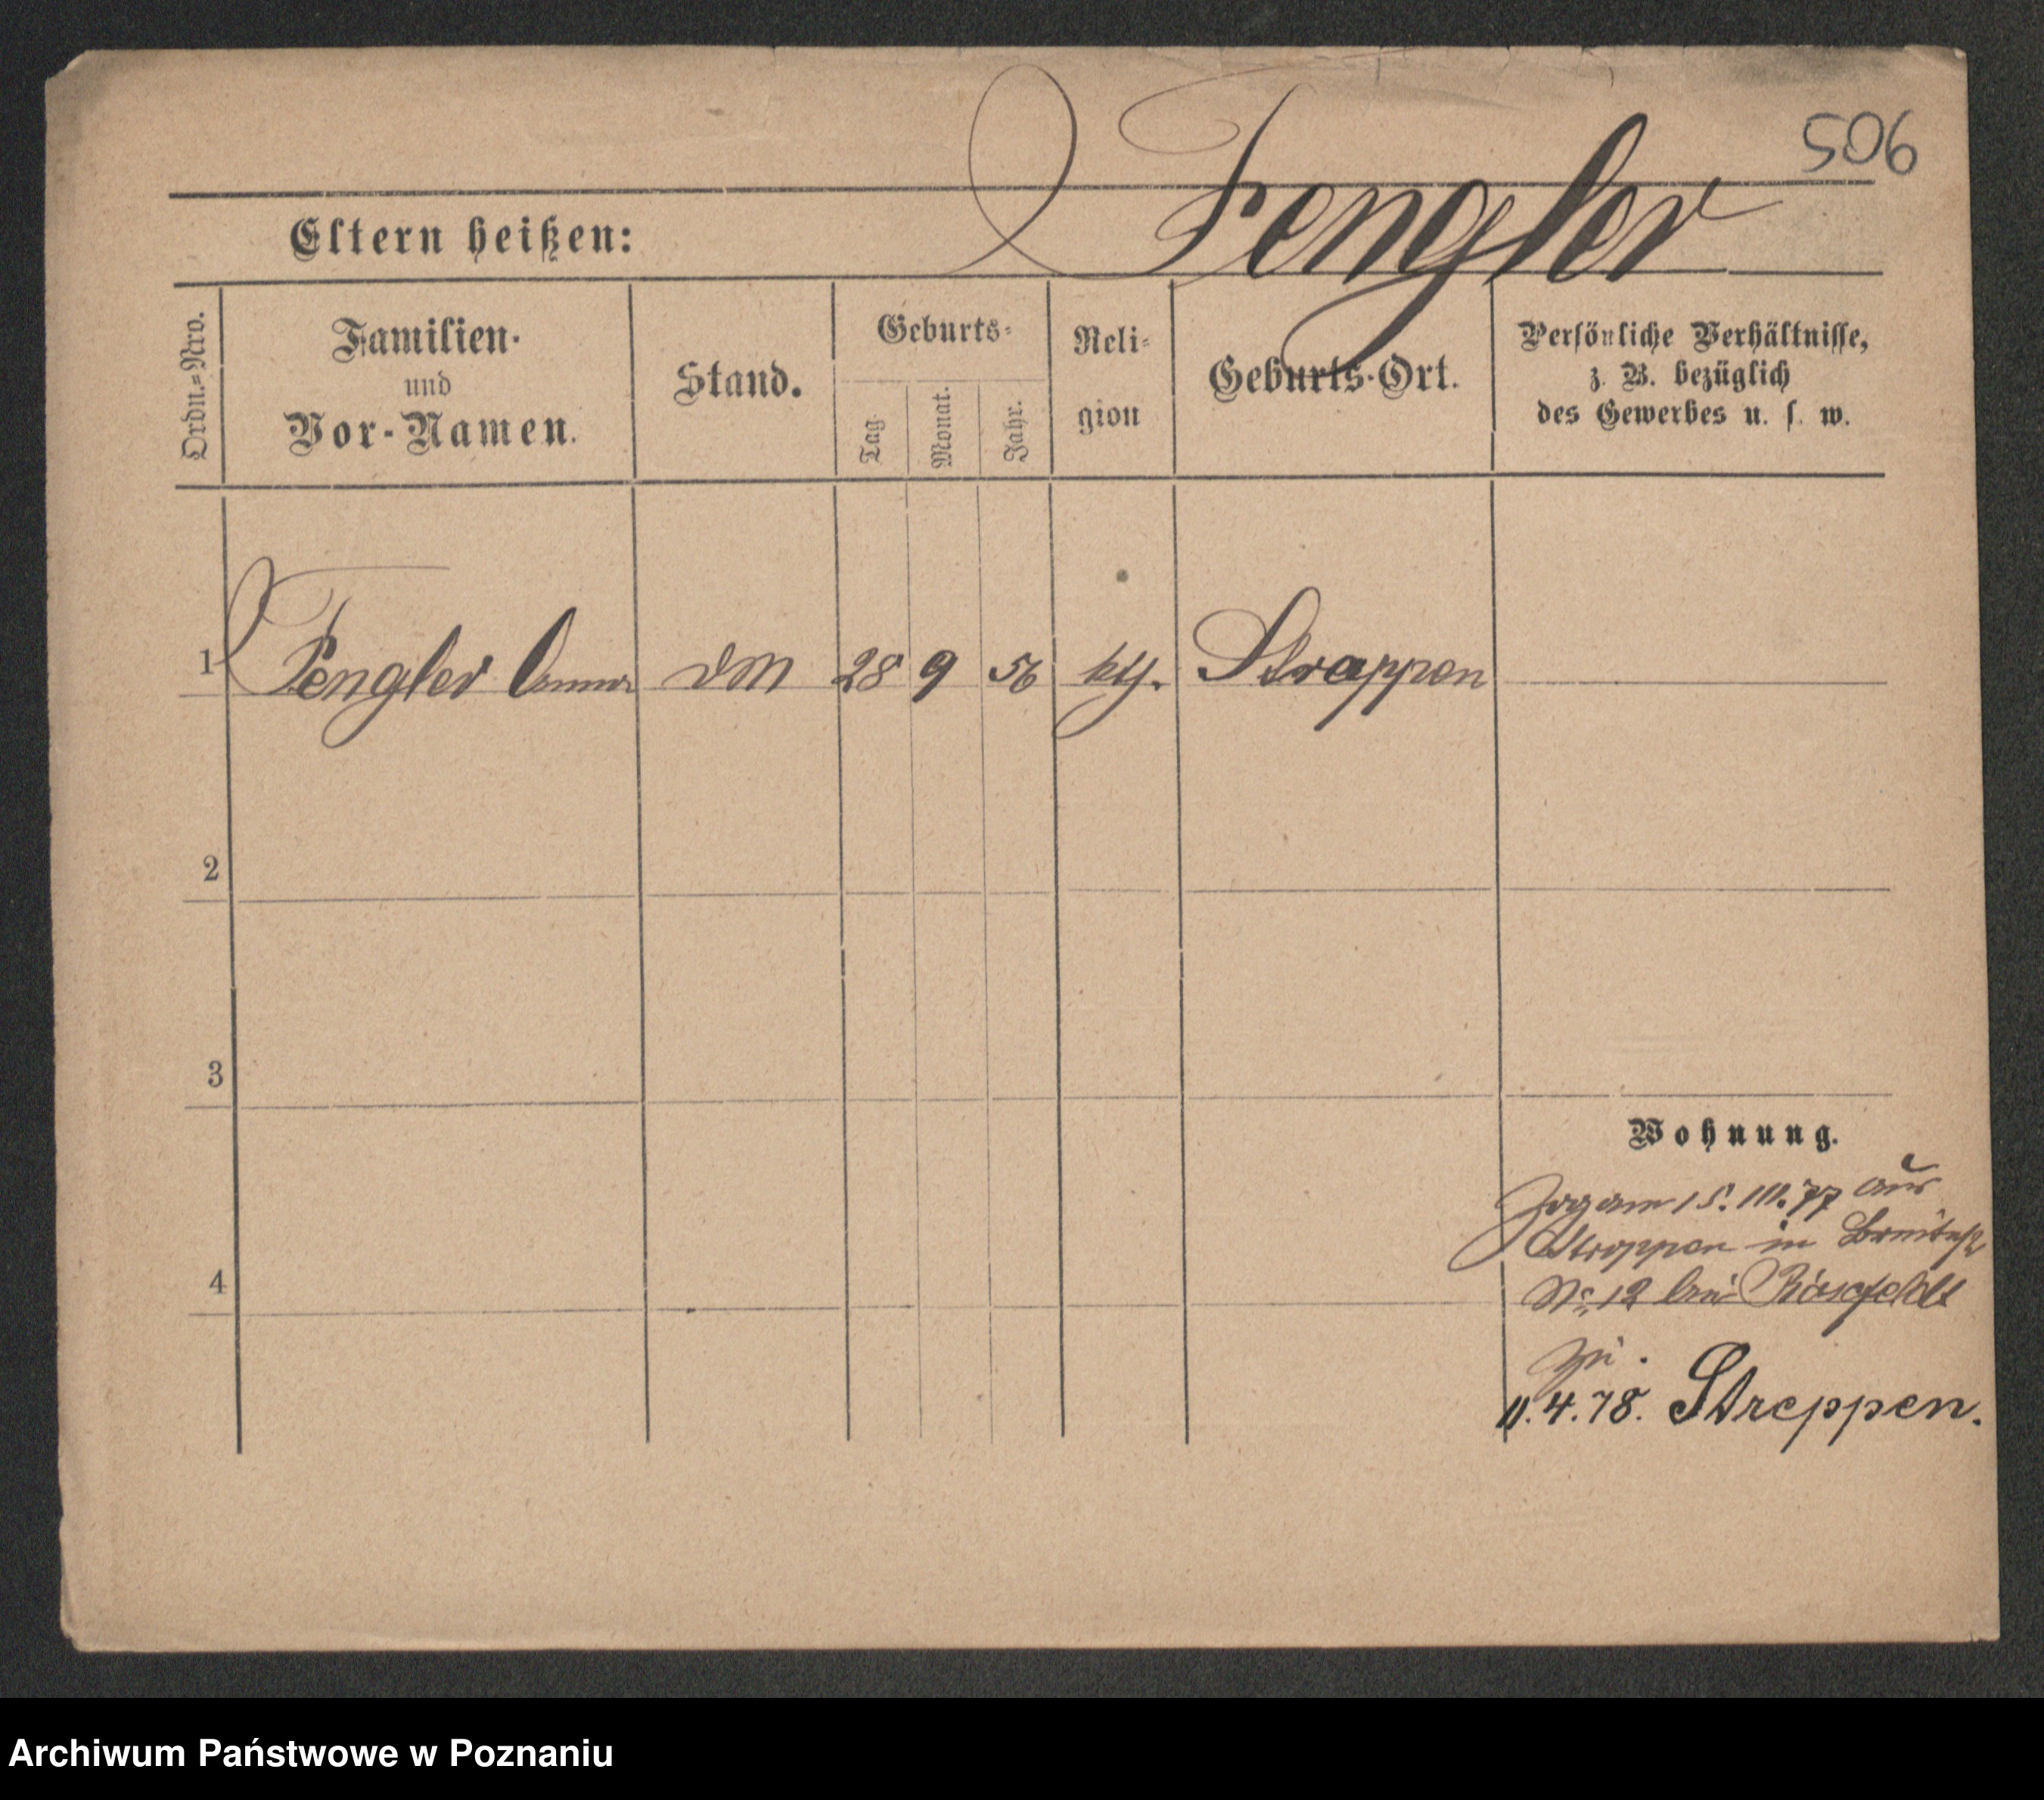 506
Fengler
Eltern heißen:
Ordn.=Nro.
Familien-
und
Vor-Namen.
Stand.
Geburts-
Tag.
Monat.
Jahr.
Reli-
gion
Geburts-Ort.
Persönliche Verhältnisse,
z. B. bezüglich
des Gewerbes u. s. w.
1 Fengler Anna DM 28 9 56 kth. Stroppen
2
3
Wohnung.
Zog am 15. III. 77 aus
Stroppen in Breitestr
4
No 12 bei
zu.
11.4.78. Stroppen.
Archiwum Państwowe w Poznaniu